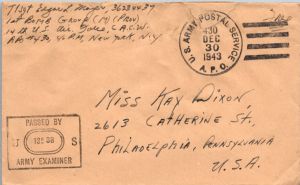 T/Sgt Edward 36284437
1st Bomb Group (M) (Prov)
14th U.S. Air Force, C.A.C.W.
APO #430, % P.M., New York, N.Y.
Free
U.S. ARMY POSTAL SERVICE
430
DEC
30
1943
A.P.O.
Miss Kay Dixon
2613 Catherine St,
Philadelphia, Pennsylvania
U.S.A.
PASSED BY
U S
ARMY EXAMINER